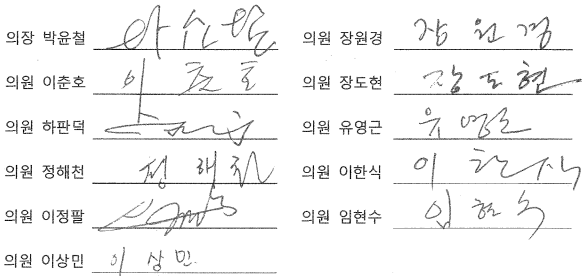 의장 박윤철
의원 이춘호 이춘호
의원 하판덕
의원 정해천 정해천
의원 이정팔
의원 이상민 이상민
의원 장원경 장원경
의원 장도현 장도현
의원 유영근 유영근
의원 이한식 이한식
의원 임현수 임현수